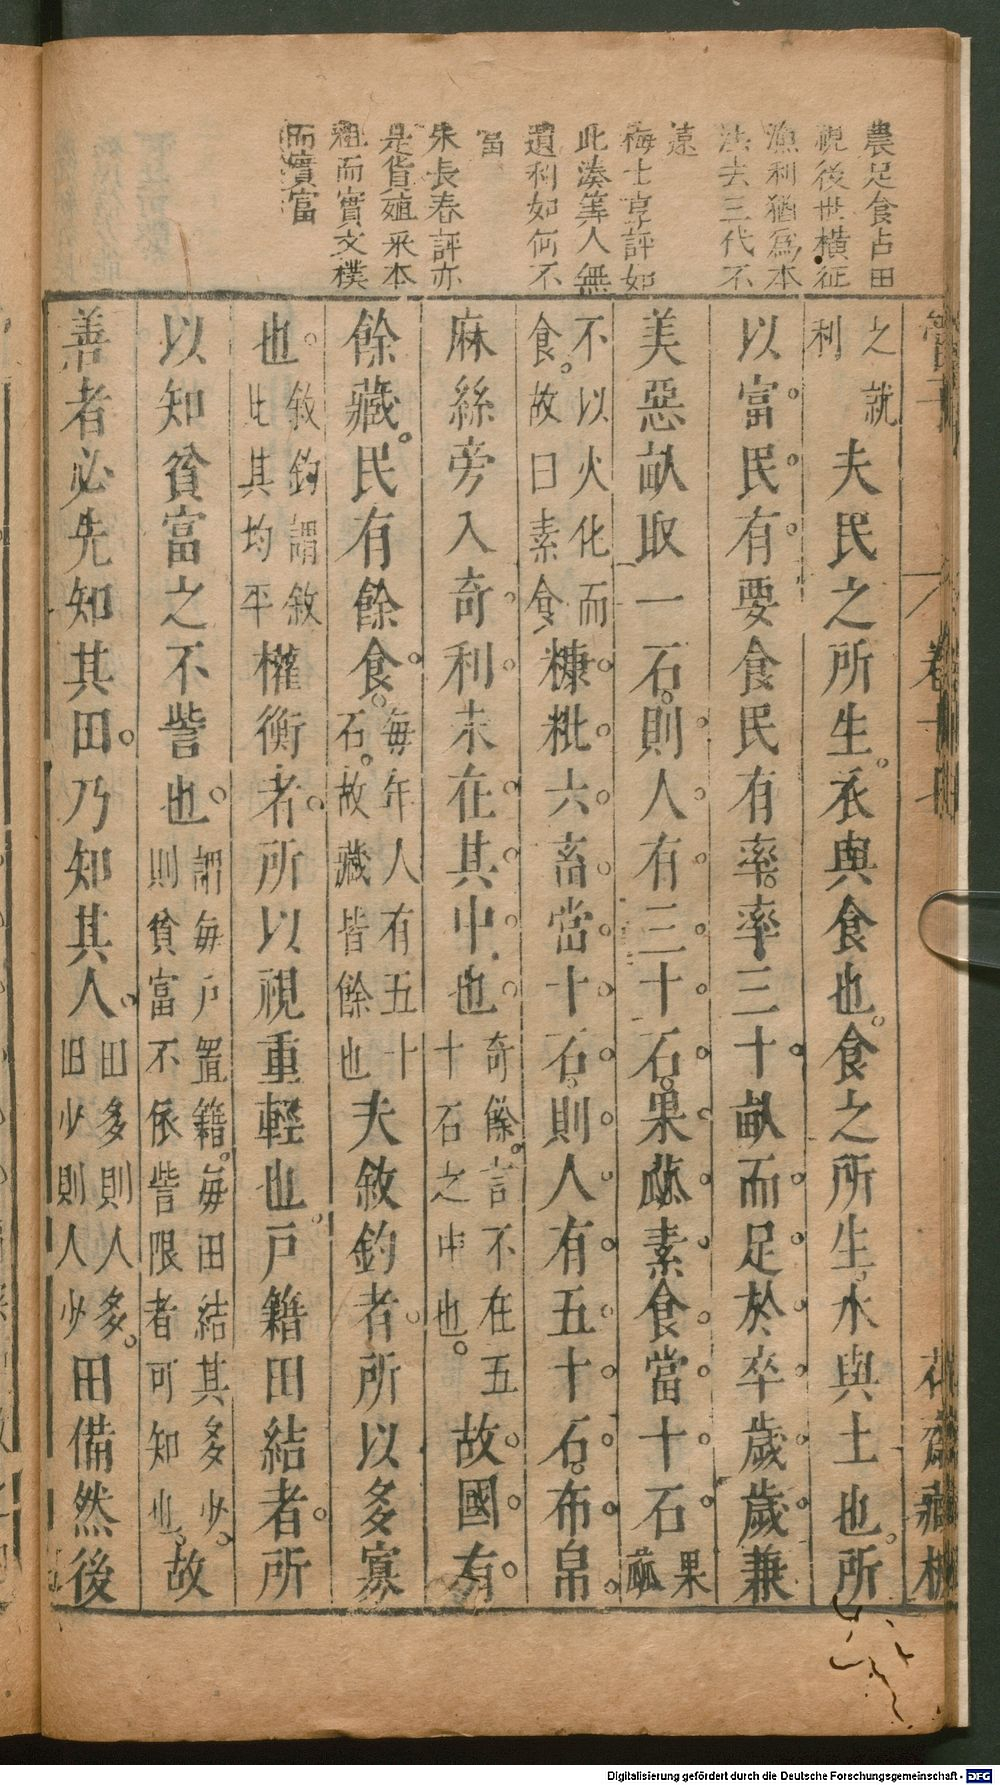 農足食占田
視後世橫征
漁利猶爲本
法去三代不
遠
梅士享評如
此湊筭人無
遺利如何不
富
朱長春評亦
是貨殖釆本
粗而實文樸
而實富
管子
卷十七
花齋藏板
之就
利
夫民之所生。衣與食也。食之所生。水與土也。所
以富民有要食民有率。率三十畝而足於卒歲歲兼
美惡畝取一石。則人有三十石。果蓏素食當十石
果
蓏
不以火化而
食。故曰素食
糠粃六畜當十石。則人有五十石。布帛
麻絲旁入奇利未在其中也
奇餘。言不在五
十石之中也。
故國有
餘藏。民有餘食。
每年人有五十
石。故藏皆餘也
夫敘鈞者所以多寡
也。
敘鈞謂敘
比其均平
權衡者所以視重輕也。戶籍田結者所
以知貧富之不訾也
謂每戶置籍。每田結其多少。
則貧富不依訾限者可知也。
故
善者必先知其田。乃知其人。
田多則人多。
田少則人少
田備然後
Digitalisierung gefördert durch die Deutsche Forschungsgemeinschaft - DFG